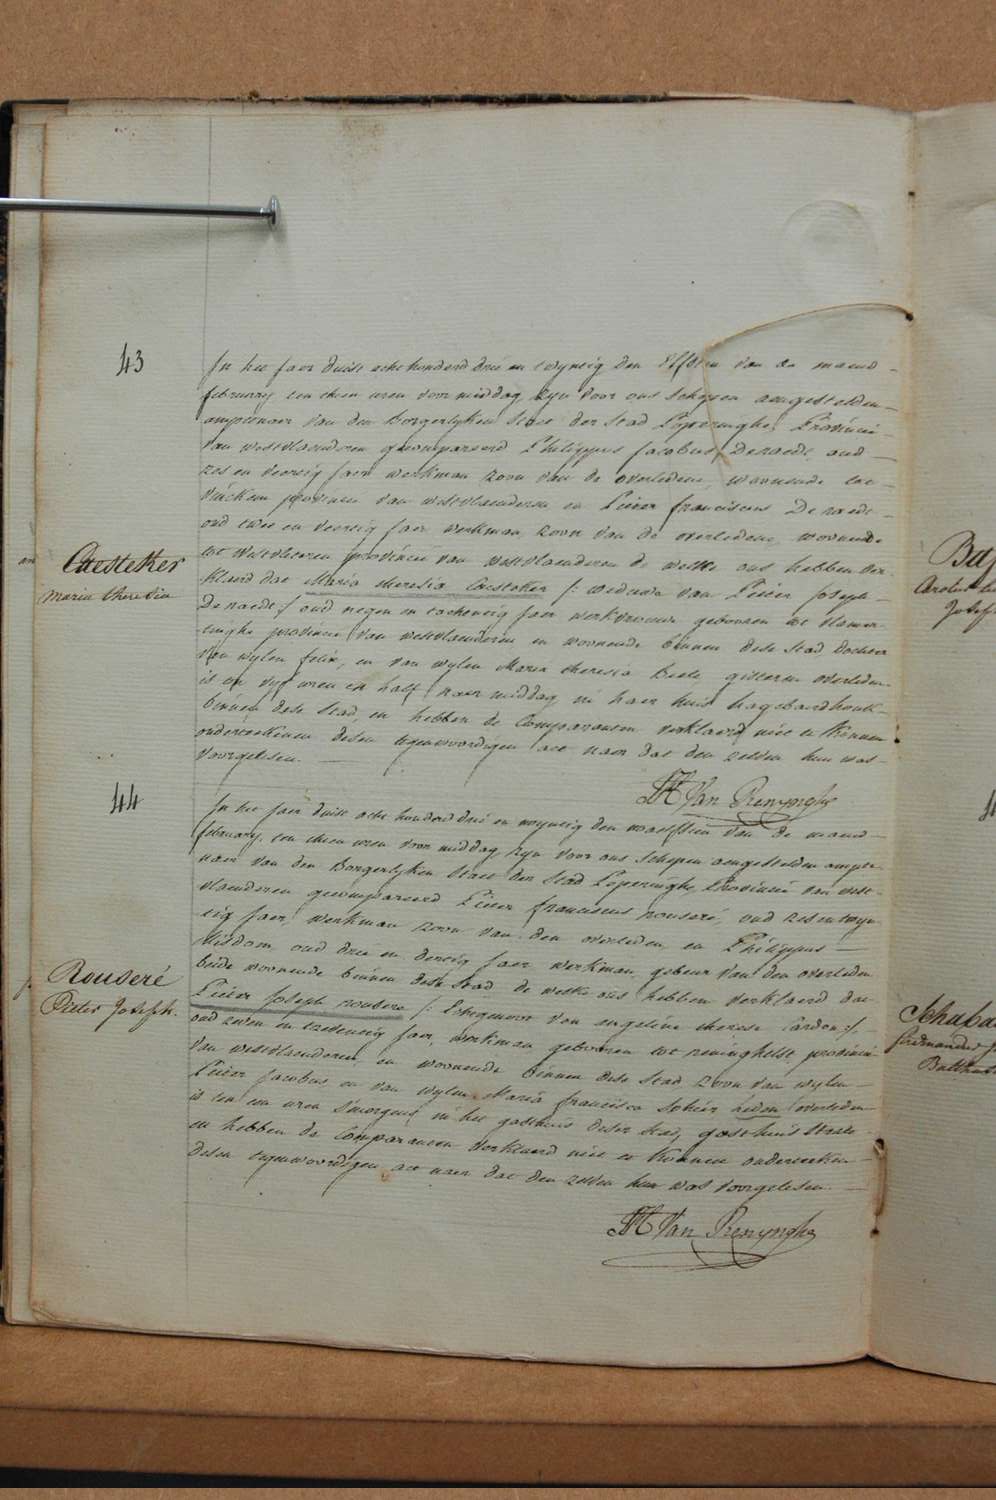 43
In het jaer duist acht honderd drie en twyntig den Elfsten van de maend
february ten thien uren voor middag, zyn voor ons Schepen aengestelden
amptenaer van den Borgerlyken Staet der Stad Poperinghe, Provincie
van westvlaenderen gecompareerd Philippus Jacobus Deraedt oud
zes en veertig jaer werkman zoon van de overledene, wonende tot
vinckem provincie van westvlaenderen en Pieter franciscus De raedt
oud twee en veertig jaer werkman zoon van de overledene, woonende
tot westvleteren provincie van westvlaenderen de welke ons hebben ver
klaerd dat Maria theresia Caesteker /: weduwe van Pieter Joseph
Deraedt :/ oud negen en tachentig jaer werkvrouw gebooren tot vlamer
tinghe provincie van westvlaenderen en woonende binnen dese Stad, dochter
van wylen felix, en van wylen Maria theresia Beele, gisteren overleden
is en vyf uren en half naer middag in haer huis
binnen dese Stad, en hebben de Comparanten verklaerd niet te konnen
onderteekenen desen tegenwoordigen act naer dat den zelven hun was
voorgelesen.
Van Renynghe
an
Caesteker
Maria theresia
44
In het jaer duist acht honderd drie en twyntig den twaelfsten van de maend
february, ten thien uren voor middag, zyn voor ons Schepen aengestelden ampte
naer van den Borgerlyken Staet der Stad Poperinghe, Provincie van west
vlaenderen gecompareerd Pieter franciscus rouseré, oud zes en twyn
tig jaer, werkman zoon van den overleden, en Philippus
Misdom, oud drie en dertig jaer werkman, gebeur van den overleden
beide woonende binnen dese Stad de welke ons hebben verklaerd dat
Pieter Joseph rousere /: Echtgenoot van angeline therese Cardon :/
oud zeven en tzeventig jaer, werkman gebooren tot reninghelst provincie
van westvlaenderen, en woonende binnen dese Stad zoon van wylen
Pieter Jacobus, en van wylen Maria francisca Sohier heden overleden
is ten een uren smorgens in het gasthuis deser Stad, gasthuis Straete
en hebben de Comparanten verklaerd niet te konnen onderteeken
desen tegenwoordigen act naer dat den zelven hun was voorgelesen.
Van Renynghe
Rouseré
Pieter Joseph.